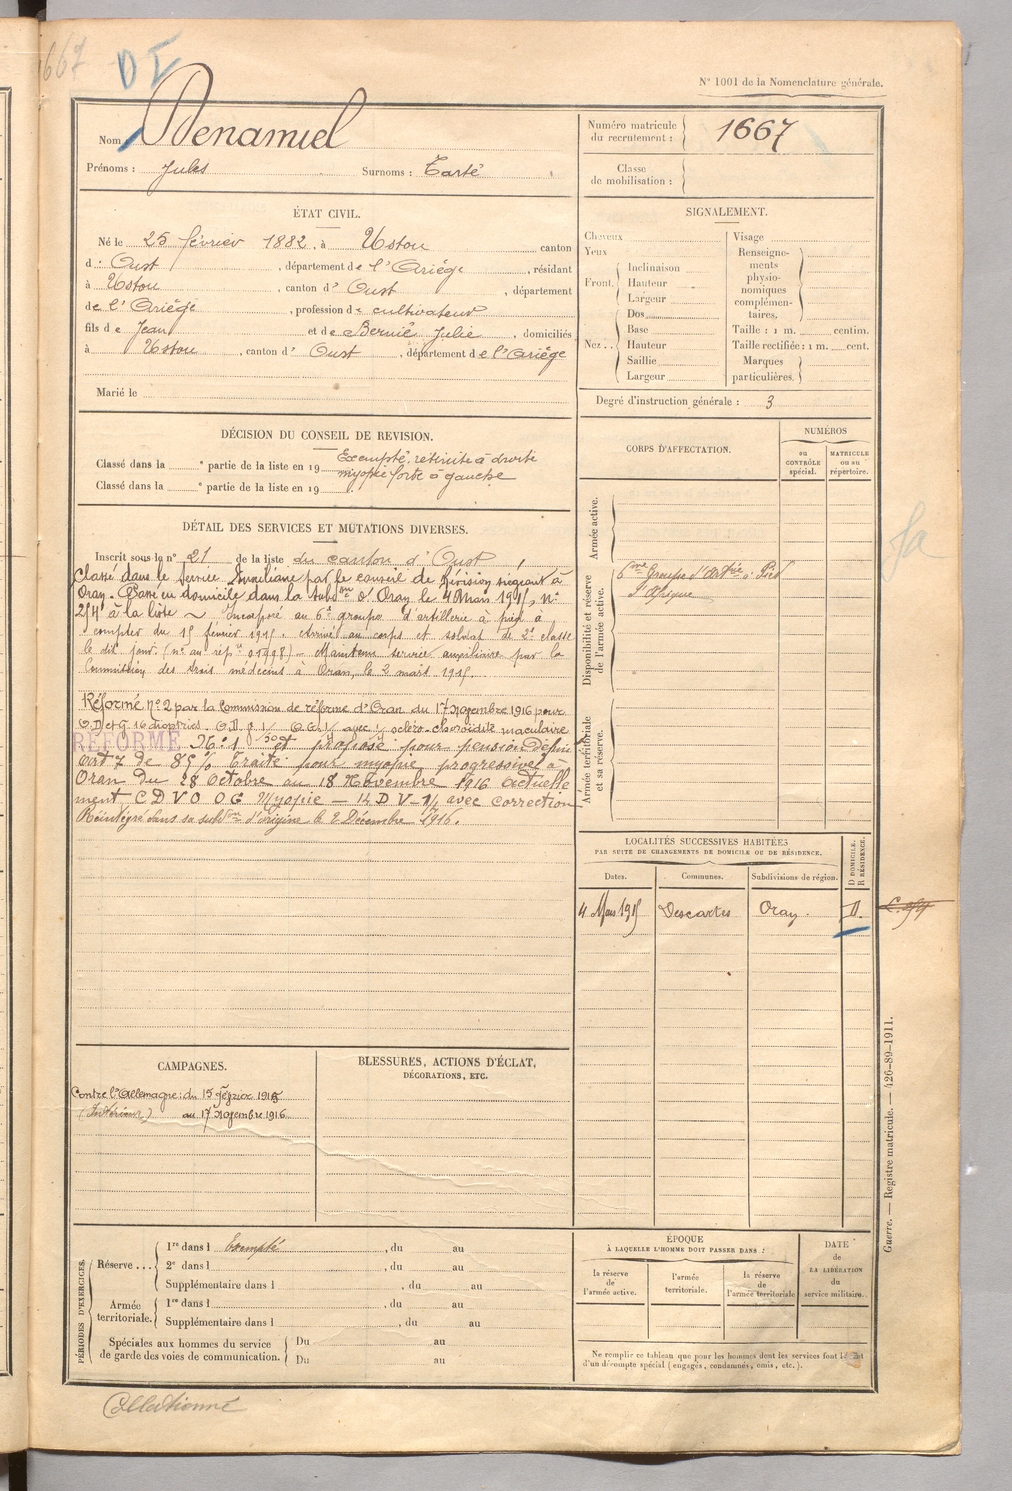 1667
DI
N° 1001 de la Nomenclature générale.
Nom : Denamiel
Prénoms : Jules Surnoms : Tarté
Numéro matricule du recrutement : 1667
Classe de mobilisation :
ÉTAT CIVIL.
Né le 25 février 1882, à Ustou canton
d' Oust, département de l'Ariége, résidant
à Ustou, canton d' Oust, département
de l'Ariége, profession de cultivateur
fils de Jean et de Bernié Julie, domiciliés
à Ustou, canton d' Oust, département de l'Ariége
Marié le
SIGNALEMENT.
Cheveux
Yeux
Front.
Inclinaison
Hauteur
Largeur
Dos
Nez..
Base
Hauteur
Saillie
Largeur
Visage
Renseignements physionomiques complémentaires.
Taille : 1 m. centim.
Taille rectifiée : 1 m. cent.
Marques particulières.
Degré d'instruction générale : 3
DÉCISION DU CONSEIL DE REVISION.
Classé dans la e partie de la liste en 19 Exempté, retinite à droite
Classé dans la e partie de la liste en 19 myopie forte à gauche
CORPS D'AFFECTATION.
NUMÉROS
au CONTRÔLE spécial.
MATRICULE ou au répertoire.
Armée active.
Disponibilité et réserve de l'armée active.
6me Groupe d'Artrie à Pied
d'Afrique
Armée territoriale et sa réserve.
DÉTAIL DES SERVICES ET MUTATIONS DIVERSES.
Inscrit sous le n° 21 de la liste du canton d'Oust
Classé dans le Service Auxiliaire par le conseil de Révision siégeant à
Oran. Passé en domicile dans la subdon d'Oran le 4 Mars 1915, N°
254 à la liste ~ Incorporé au 6e groupe d'artillerie à pied à
compter du 15 février 1915. Arrivé au corps et soldat de 2e classe
le dit jour. (n° au rép.re 01498) – Maintenu service auxiliaire par la
Commission des trois médecins à Oran, le 2 mars 1915.
Réformé n°2 par la Commission de réforme d'Oran du 17 novembre 1916 pour
O.D et G. 16 dioptries. scléro-choroïdite maculaire
RÉFORMÉ N° 1 et proposé pour pension
de 85 % Traité pour myopie progressive à
Oran du 28 Octobre au 18 Novembre 1916 actuelle
ment C D V O O G Myopie – 14 D V avec correction
Réintégré dans sa subdon d'origine le 2 Décembre 1916.
LOCALITÉS SUCCESSIVES HABITÉES
PAR SUITE DE CHANGEMENTS DE DOMICILE OU DE RÉSIDENCE.
Dates. Communes. Subdivisions de région. D DOMICILE. R RÉSIDENCE.
4 Mars 1915 Descartes Oran. D.
CAMPAGNES.
Contre l'Allemagne : du 15 février 1915
(Intérieur) au 17 novembre 1916
BLESSURES, ACTIONS D'ÉCLAT,
DÉCORATIONS, ETC.
PÉRIODES D'EXERCICES.
Réserve ...
1re dans l Exempté, du au
2e dans l, du au
Supplémentaire dans l, du au
Armée territoriale.
1re dans l, du au
Supplémentaire dans l, du au
Spéciales aux hommes du service de garde des voies de communication.
Du au
Du au
ÉPOQUE
À LAQUELLE L'HOMME DOIT PASSER DANS :
la réserve de l'armée active.
l'armée territoriale.
la réserve de l'armée territoriale
DATE de LA LIBÉRATION du service militaire.
Ne remplir ce tableau que pour les hommes dont les services font l'objet
d'un décompte spécial (engagés, condamnés, omis, etc.).
Guerre. — Registre matricule. — 426-89-1911.
Collationné